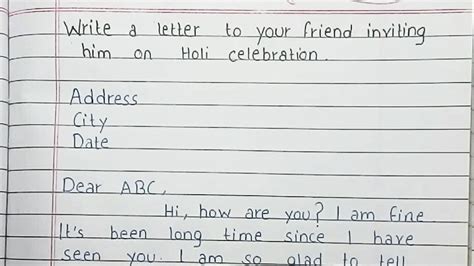 Write a letter to your friend inviting
him on Holi celebration.
Address
City
Date
Dear ABC,
Hi, how are you? I am fine.
It's been long time since I have
seen you. I am so glad to tell